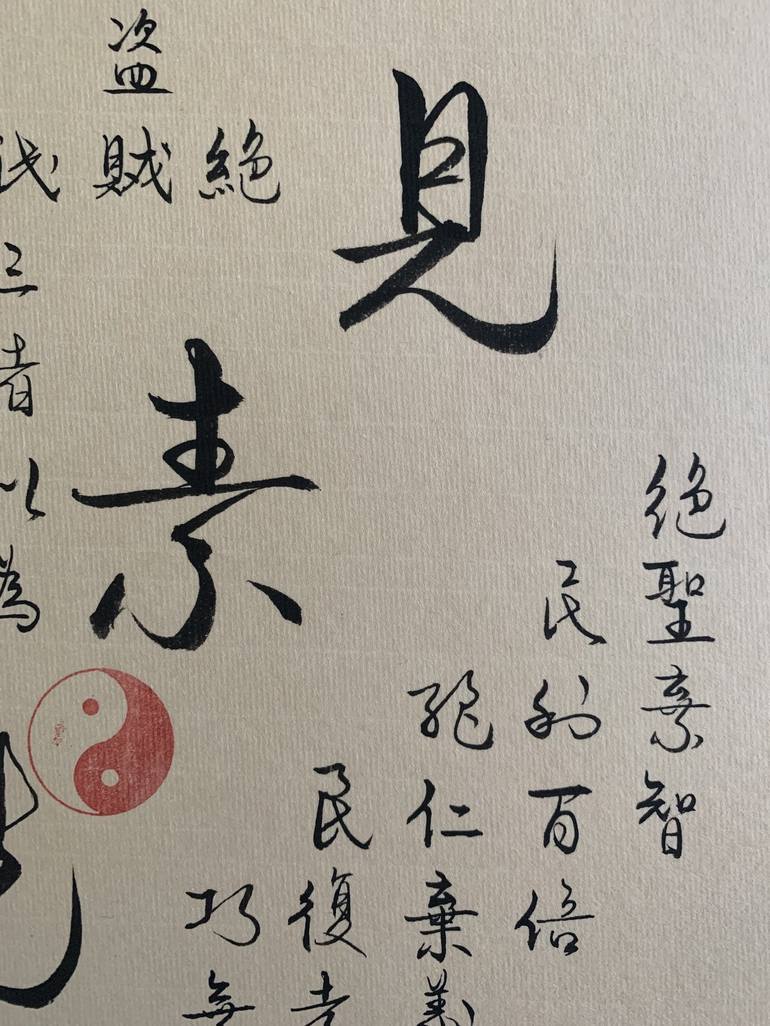 見素
絶聖棄智
民利百倍
絶仁棄義
民復孝
絶
巧
盗賊
三者以為